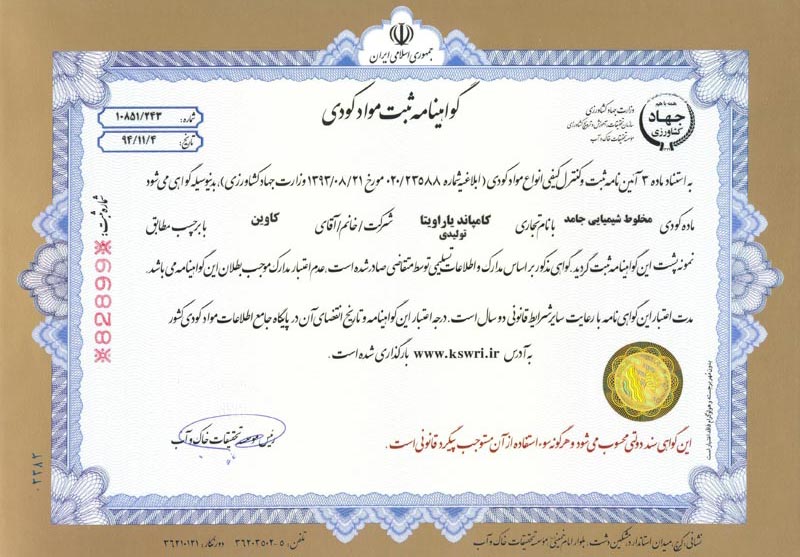 جمهوری اسلامی ایران
گواهینامه ثبت مواد کودی
شماره: ۱۰۸۵۱/۲۴۳
تاریخ: ۹۴/۱۱/۴
وزارت جهاد کشاورزی
سازمان تحقیقات، آموزش و ترویج کشاورزی
موسسه تحقیقات خاک و آب
همه با هم
جهاد
کشاورزی
به استناد ماده ۳ آئین نامه ثبت و کنترل کیفی انواع مواد کودی (ابلاغیه شماره ۰۲۰/۲۳۵۸۸ مورخ ۱۳۹۳/۰۸/۲۱ وزارت جهاد کشاورزی)، بدینوسیله گواهی می شود
ماده کودی مخلوط شیمیایی جامد با نام تجاری کامپاند یاراویتا تولیدی شرکت/خانم/آقای کاوین با برچسب مطابق
نمونه پشت این گواهینامه ثبت گردید. گواهی مذکور بر اساس مدارک و اطلاعات تسلیمی توسط متقاضی صادر شده است. عدم اعتبار مدارک موجب بطلان این گواهینامه می باشد.
مدت اعتبار این گواهی نامه با رعایت سایر شرایط قانونی دو سال است. درجه اعتبار این گواهینامه و تاریخ انقضای آن در پایگاه جامع اطلاعات مواد کودی کشور
به آدرس www.kswri.ir بارگذاری شده است.
شماره ثبت:
※82899※
رئیس موسسه تحقیقات خاک و آب
بدون مهر برجسته و هولوگرام فاقد اعتبار است
این گواهی سند دولتی محسوب می شود و هرگونه سوء استفاده از آن مستوجب پیگرد قانونی است.
۰۲۳۸۲
نشانی: کرج، میدان استاندارد، مشکین دشت، بلوار امام خمینی، موسسه تحقیقات خاک و آب
تلفن: ۵-۳۶۲۰۳۵۰۲ دورنگار: ۳۶۲۱۰۱۲۱